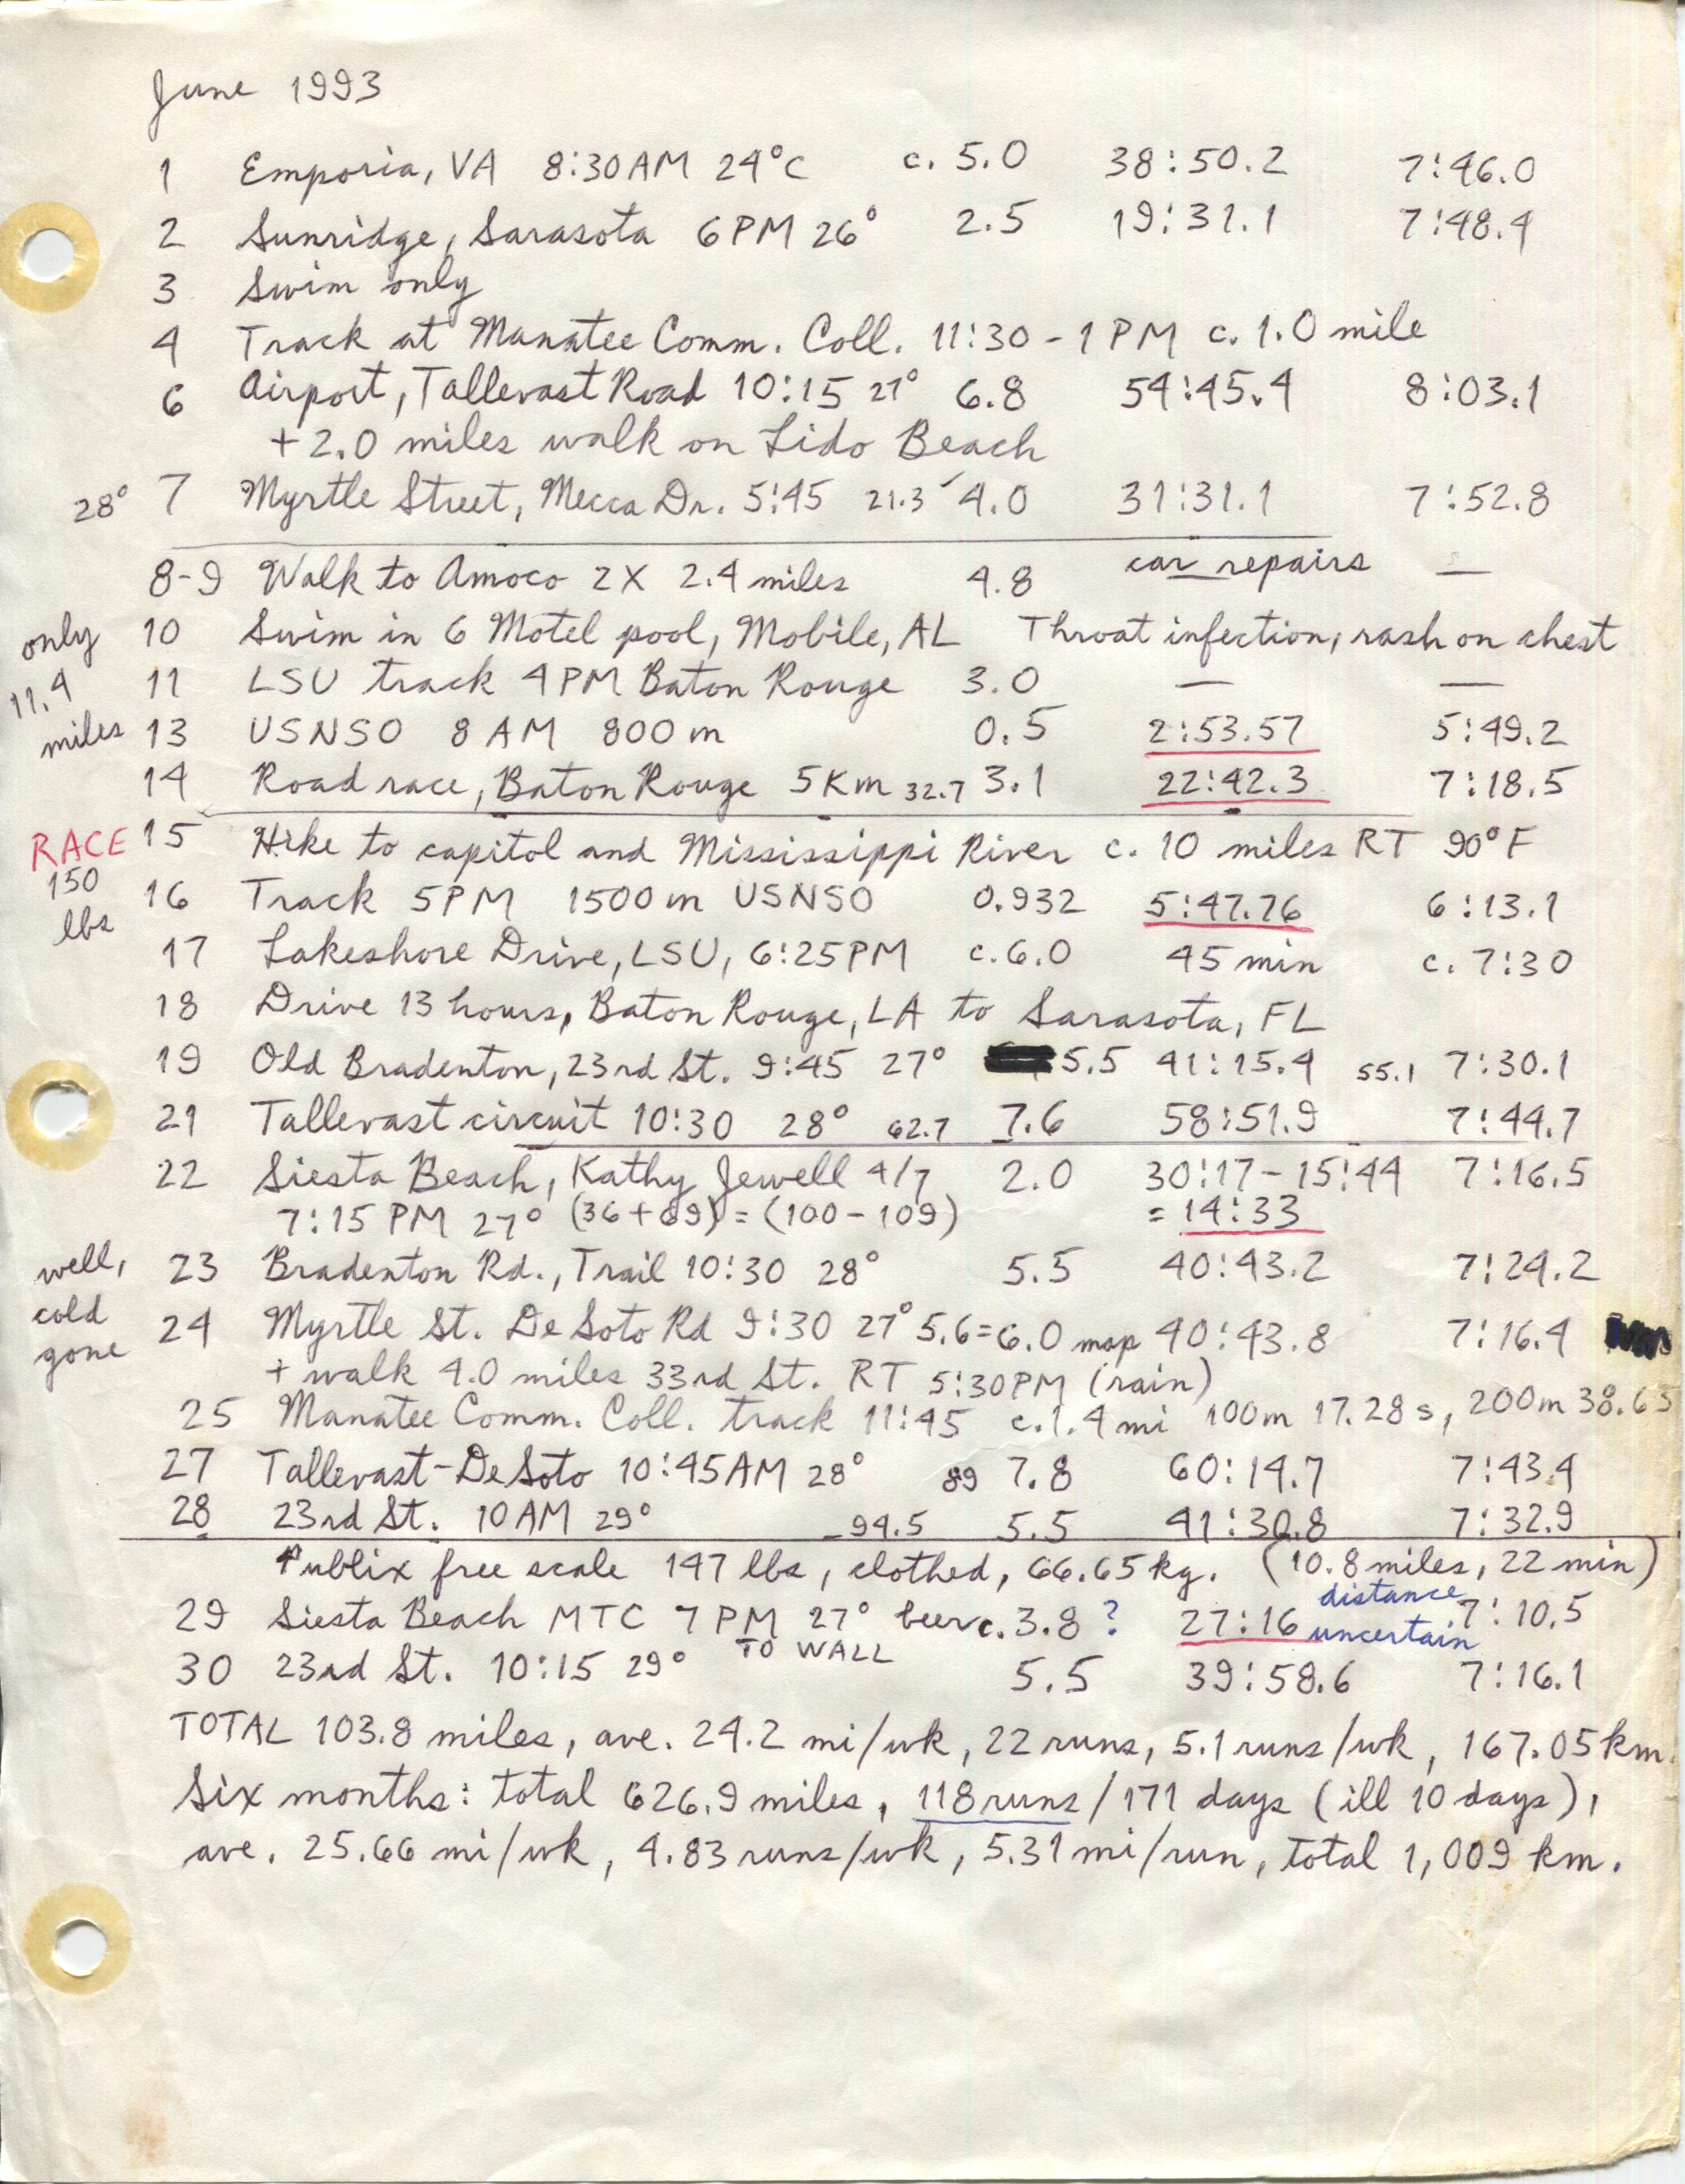 June 1993
1 Emporia, VA 8:30AM 24°C c. 5.0 38:50.2 7:46.0
2 Sunridge, Sarasota 6PM 26° 2.5 19:31.1 7:48.4
3 Swim only
4 Track at Manatee Comm. Coll. 11:30 - 1 PM c. 1.0 mile
6 Airport, Tallevast Road 10:15 27° 6.8 54:45.4 8:03.1
+ 2.0 miles walk on Lido Beach
28° 7 Myrtle Street, Mecca Dr. 5:45 21.3 4.0 31:31.1 7:52.8
8-9 Walk to Amoco 2X 2.4 miles 4.8 car repairs —
only 10 Swim in 6 Motel pool, Mobile, AL Throat infection, rash on chest
11.4 11 LSU track 4PM Baton Rouge 3.0 — —
miles 13 USNSO 8 AM 800 m 0.5 2:53.57 5:49.2
14 Road race, Baton Rouge 5Km 32.7 3.1 22:42.3 7:18.5
RACE 15 Hike to capitol and Mississippi River c. 10 miles RT 90°F
150 lbs 16 Track 5PM 1500 m USNSO 0.932 5:47.76 6:13.1
17 Lakeshore Drive, LSU, 6:25PM c. 6.0 45 min c. 7:30
18 Drive 13 hours, Baton Rouge, LA to Sarasota, FL
19 Old Bradenton, 23rd St. 9:45 27° 5.5 41:15.4 55.1 7:30.1
21 Tallevast circuit 10:30 28° 62.7 7.6 58:51.9 7:44.7
22 Siesta Beach, Kathy Jewell 4/7 2.0 30:17-15:44 7:16.5
7:15 PM 27° (36+69) = (100-109) = 14:33
well, 23 Bradenton Rd., Trail 10:30 28° 5.5 40:43.2 7:24.2
cold 24 Myrtle St. De Soto Rd 9:30 27° 5.6=6.0 map 40:43.8 7:16.4
gone + walk 4.0 miles 33rd St. RT 5:30PM (rain)
25 Manatee Comm. Coll. track 11:45 c.1.4 mi 100m 17.28 s, 200m 38.65
27 Tallevast-De Soto 10:45AM 28° 89 7.8 60:14.7 7:43.4
28 23rd St. 10AM 29° 94.5 5.5 41:30.8 7:32.9
Publix free scale 147 lbs, clothed, 66.65 kg. (10.8 miles, 22 min)
29 Siesta Beach MTC 7 PM 27° beer c. 3.8 ? 27:16 distance uncertain 7:10.5
TO WALL
30 23rd St. 10:15 29° 5.5 39:58.6 7:16.1
TOTAL 103.8 miles, ave. 24.2 mi/wk, 22 runs, 5.1 runs/wk, 167.05 km.
Six months: total 626.9 miles, 118 runs/171 days (ill 10 days),
ave. 25.66 mi/wk, 4.83 runs/wk, 5.31 mi/run, total 1,009 km.